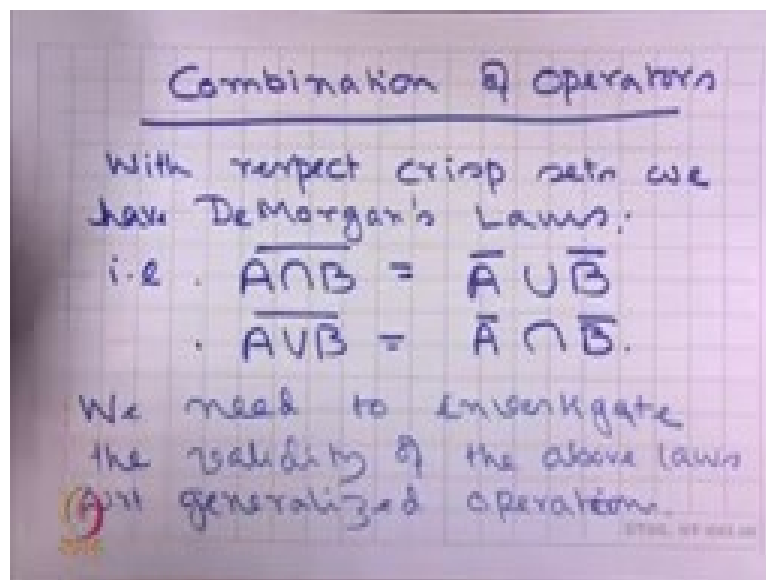 Combination of operators
With respect crisp sets we
have DeMorgan's Laws.
i.e. \overline{A∩B} = \overline{A} ∪ \overline{B}
. \overline{A∪B} = \overline{A} ∩ \overline{B}.
We need to investigate
the validity of the above laws
generalized operations.